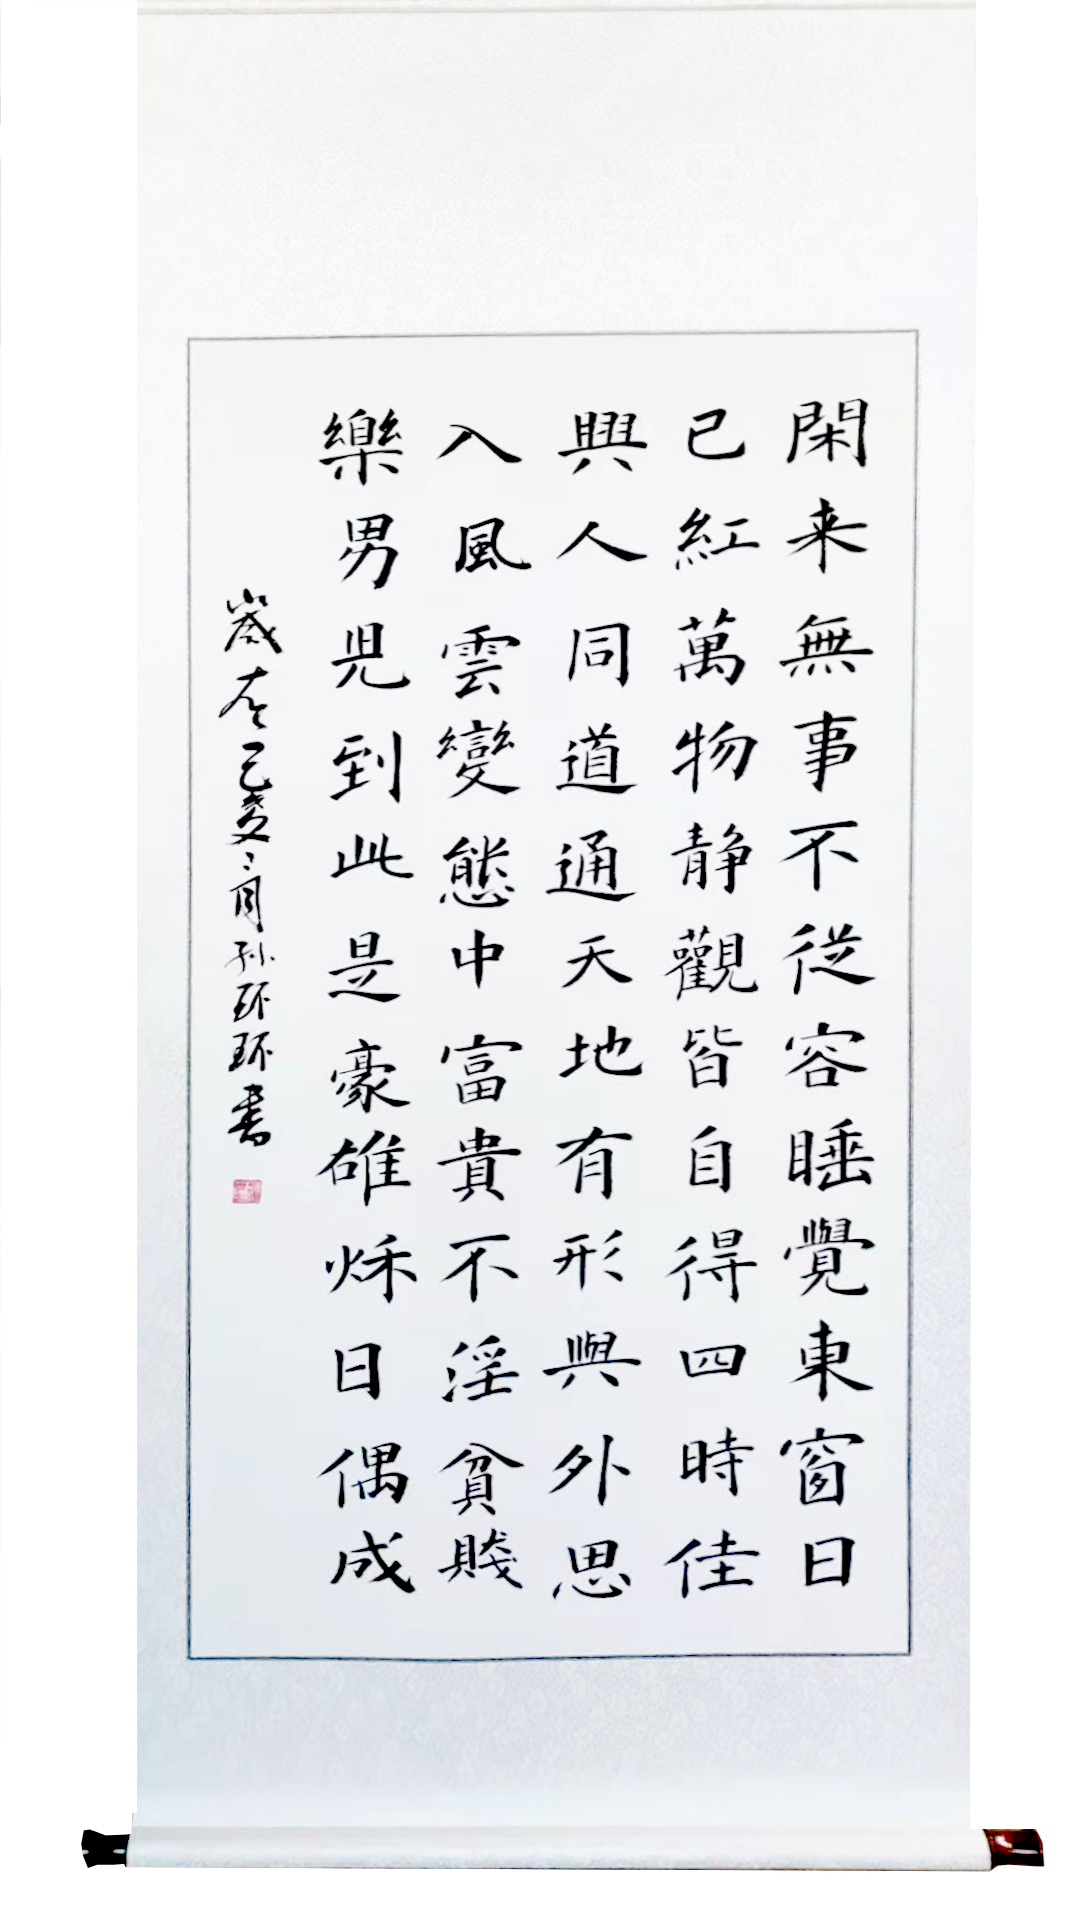 閑来無事不従容睡覺東窗日
已紅萬物静觀皆自得四時佳
興人同道通天地有形與外思
入風雲變態中富貴不淫貧賤
樂男児到此是豪雄秌日偶成
歲在己亥二月孙环环書